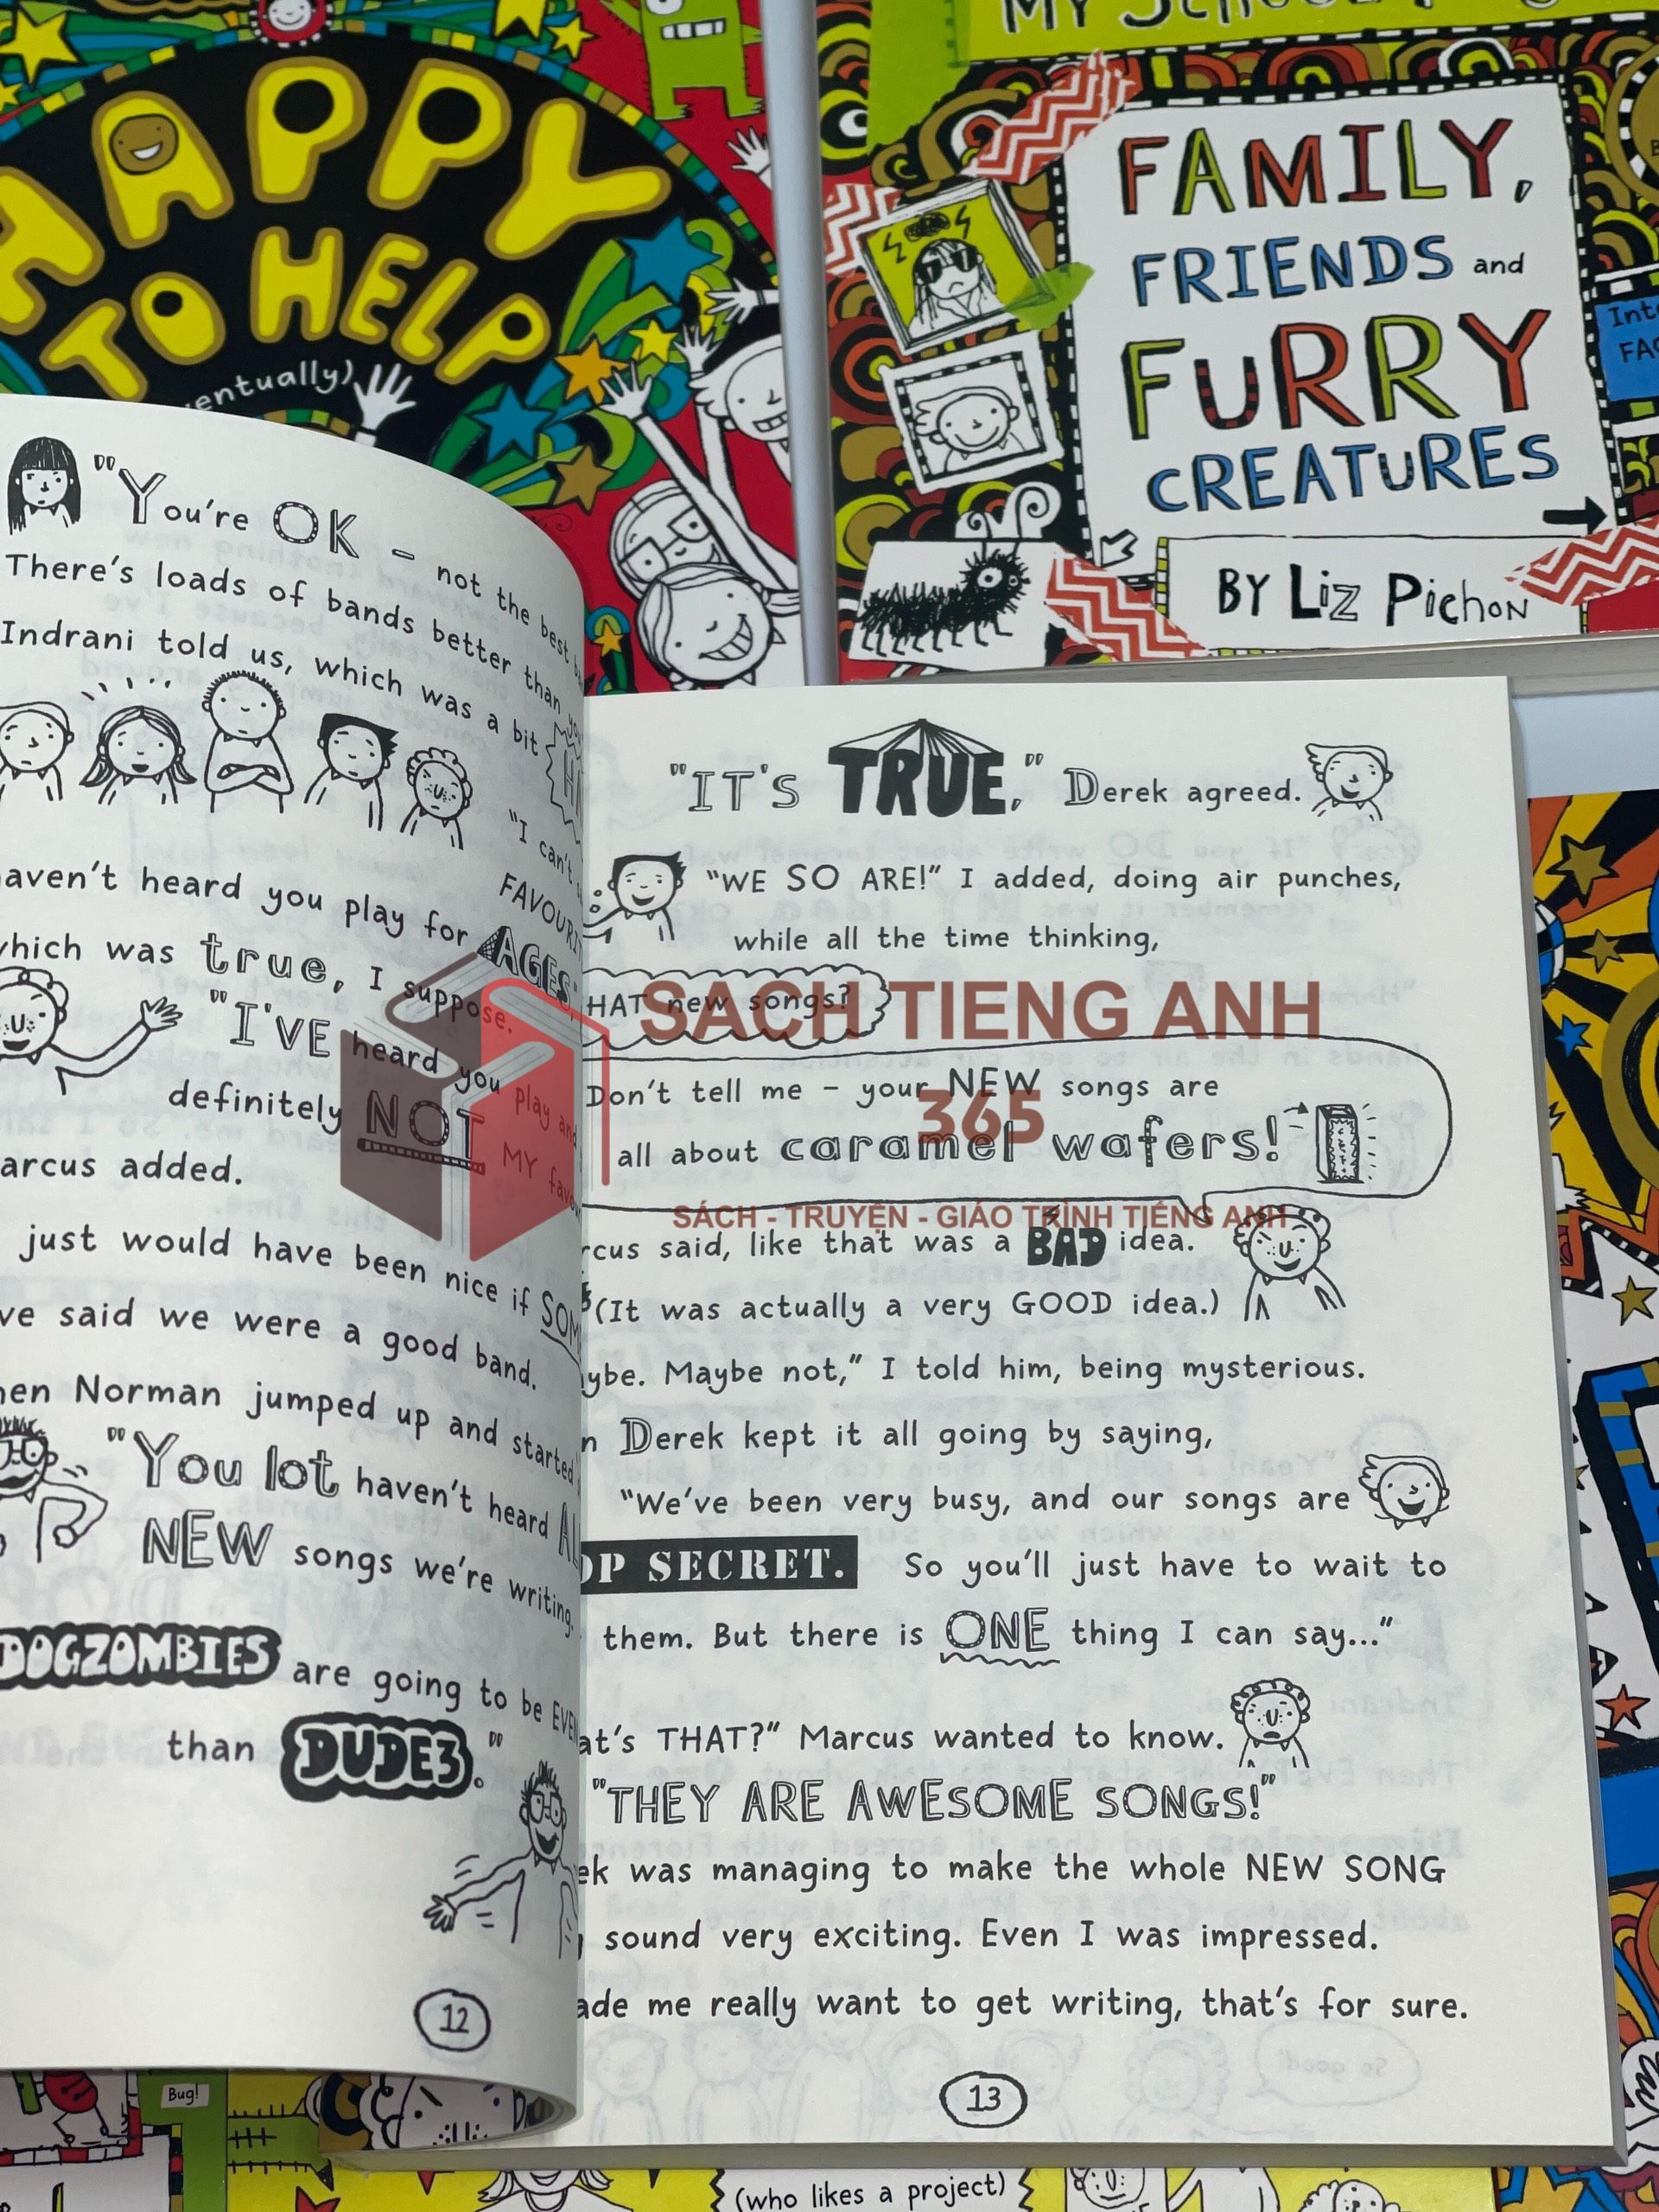 HAPPY
TO HELP
MY SCHOOL
FAMILY,
FRIENDS and
FURRY
CREATURES
BY Liz Pichon
"You're OK - not the best
There's loads of bands better than
Indrani told us, which was a bit
"I can't
haven't heard you play for AGES,"
which was true, I suppose.
"I'VE heard you play and
definitely NOT MY
arcus added.
just would have been nice if
ve said we were a good band.
Norman jumped up and started
"You lot haven't heard
NEW songs we're writing.
DOGZOMBIES are going to be EVEN
than DUDE3."
12
"IT'S TRUE," Derek agreed.
"WE SO ARE!" I added, doing air punches,
while all the time thinking,
HAT new songs?
Don't tell me - your NEW songs are
all about caramel wafers!
rcus said, like that was a BAD idea.
(It was actually a very GOOD idea.)
ybe. Maybe not," I told him, being mysterious.
n Derek kept it all going by saying,
"We've been very busy, and our songs are
OP SECRET. So you'll just have to wait to
them. But there is ONE thing I can say..."
at's THAT?" Marcus wanted to know.
"THEY ARE AWESOME SONGS!"
ek was managing to make the whole NEW SONG
sound very exciting. Even I was impressed.
ade me really want to get writing, that's for sure.
13
SACH TIENG ANH
365
SÁCH - TRUYỆN - GIÁO TRÌNH TIẾNG ANH
Bug!
(who likes a project)